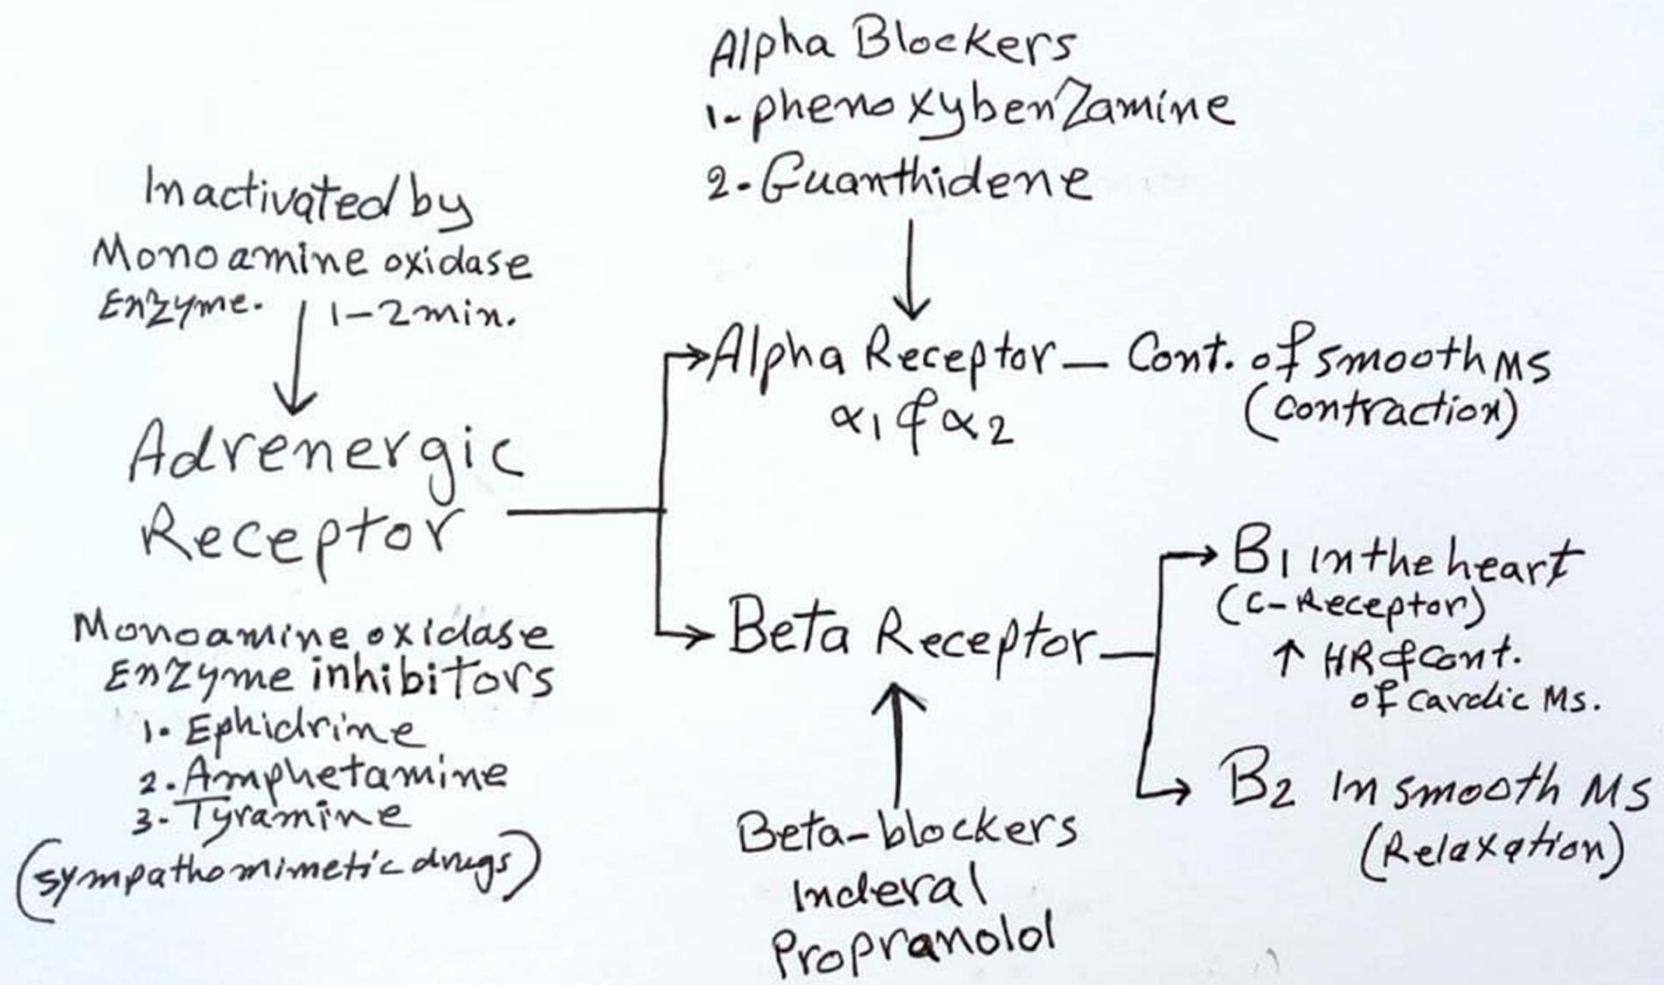 Alpha Blockers
1- phenoxybenzamine
2. Guanthidene
Inactivated by
Monoamine oxidase
Enzyme. 1-2min.
Adrenergic
Receptor
Alpha Receptor - Cont. of smooth MS
(contraction)
α1 & α2
Beta Receptor
B1 in the heart
(C-Receptor)
↑ HR & cont.
of cardic Ms.
B2 in smooth MS
(Relaxation)
Beta-blockers
Inderal
Propranolol
Monoamine oxidase
Enzyme inhibitors
1. Ephidrine
2. Amphetamine
3- Tyramine
(sympathomimetic drugs)